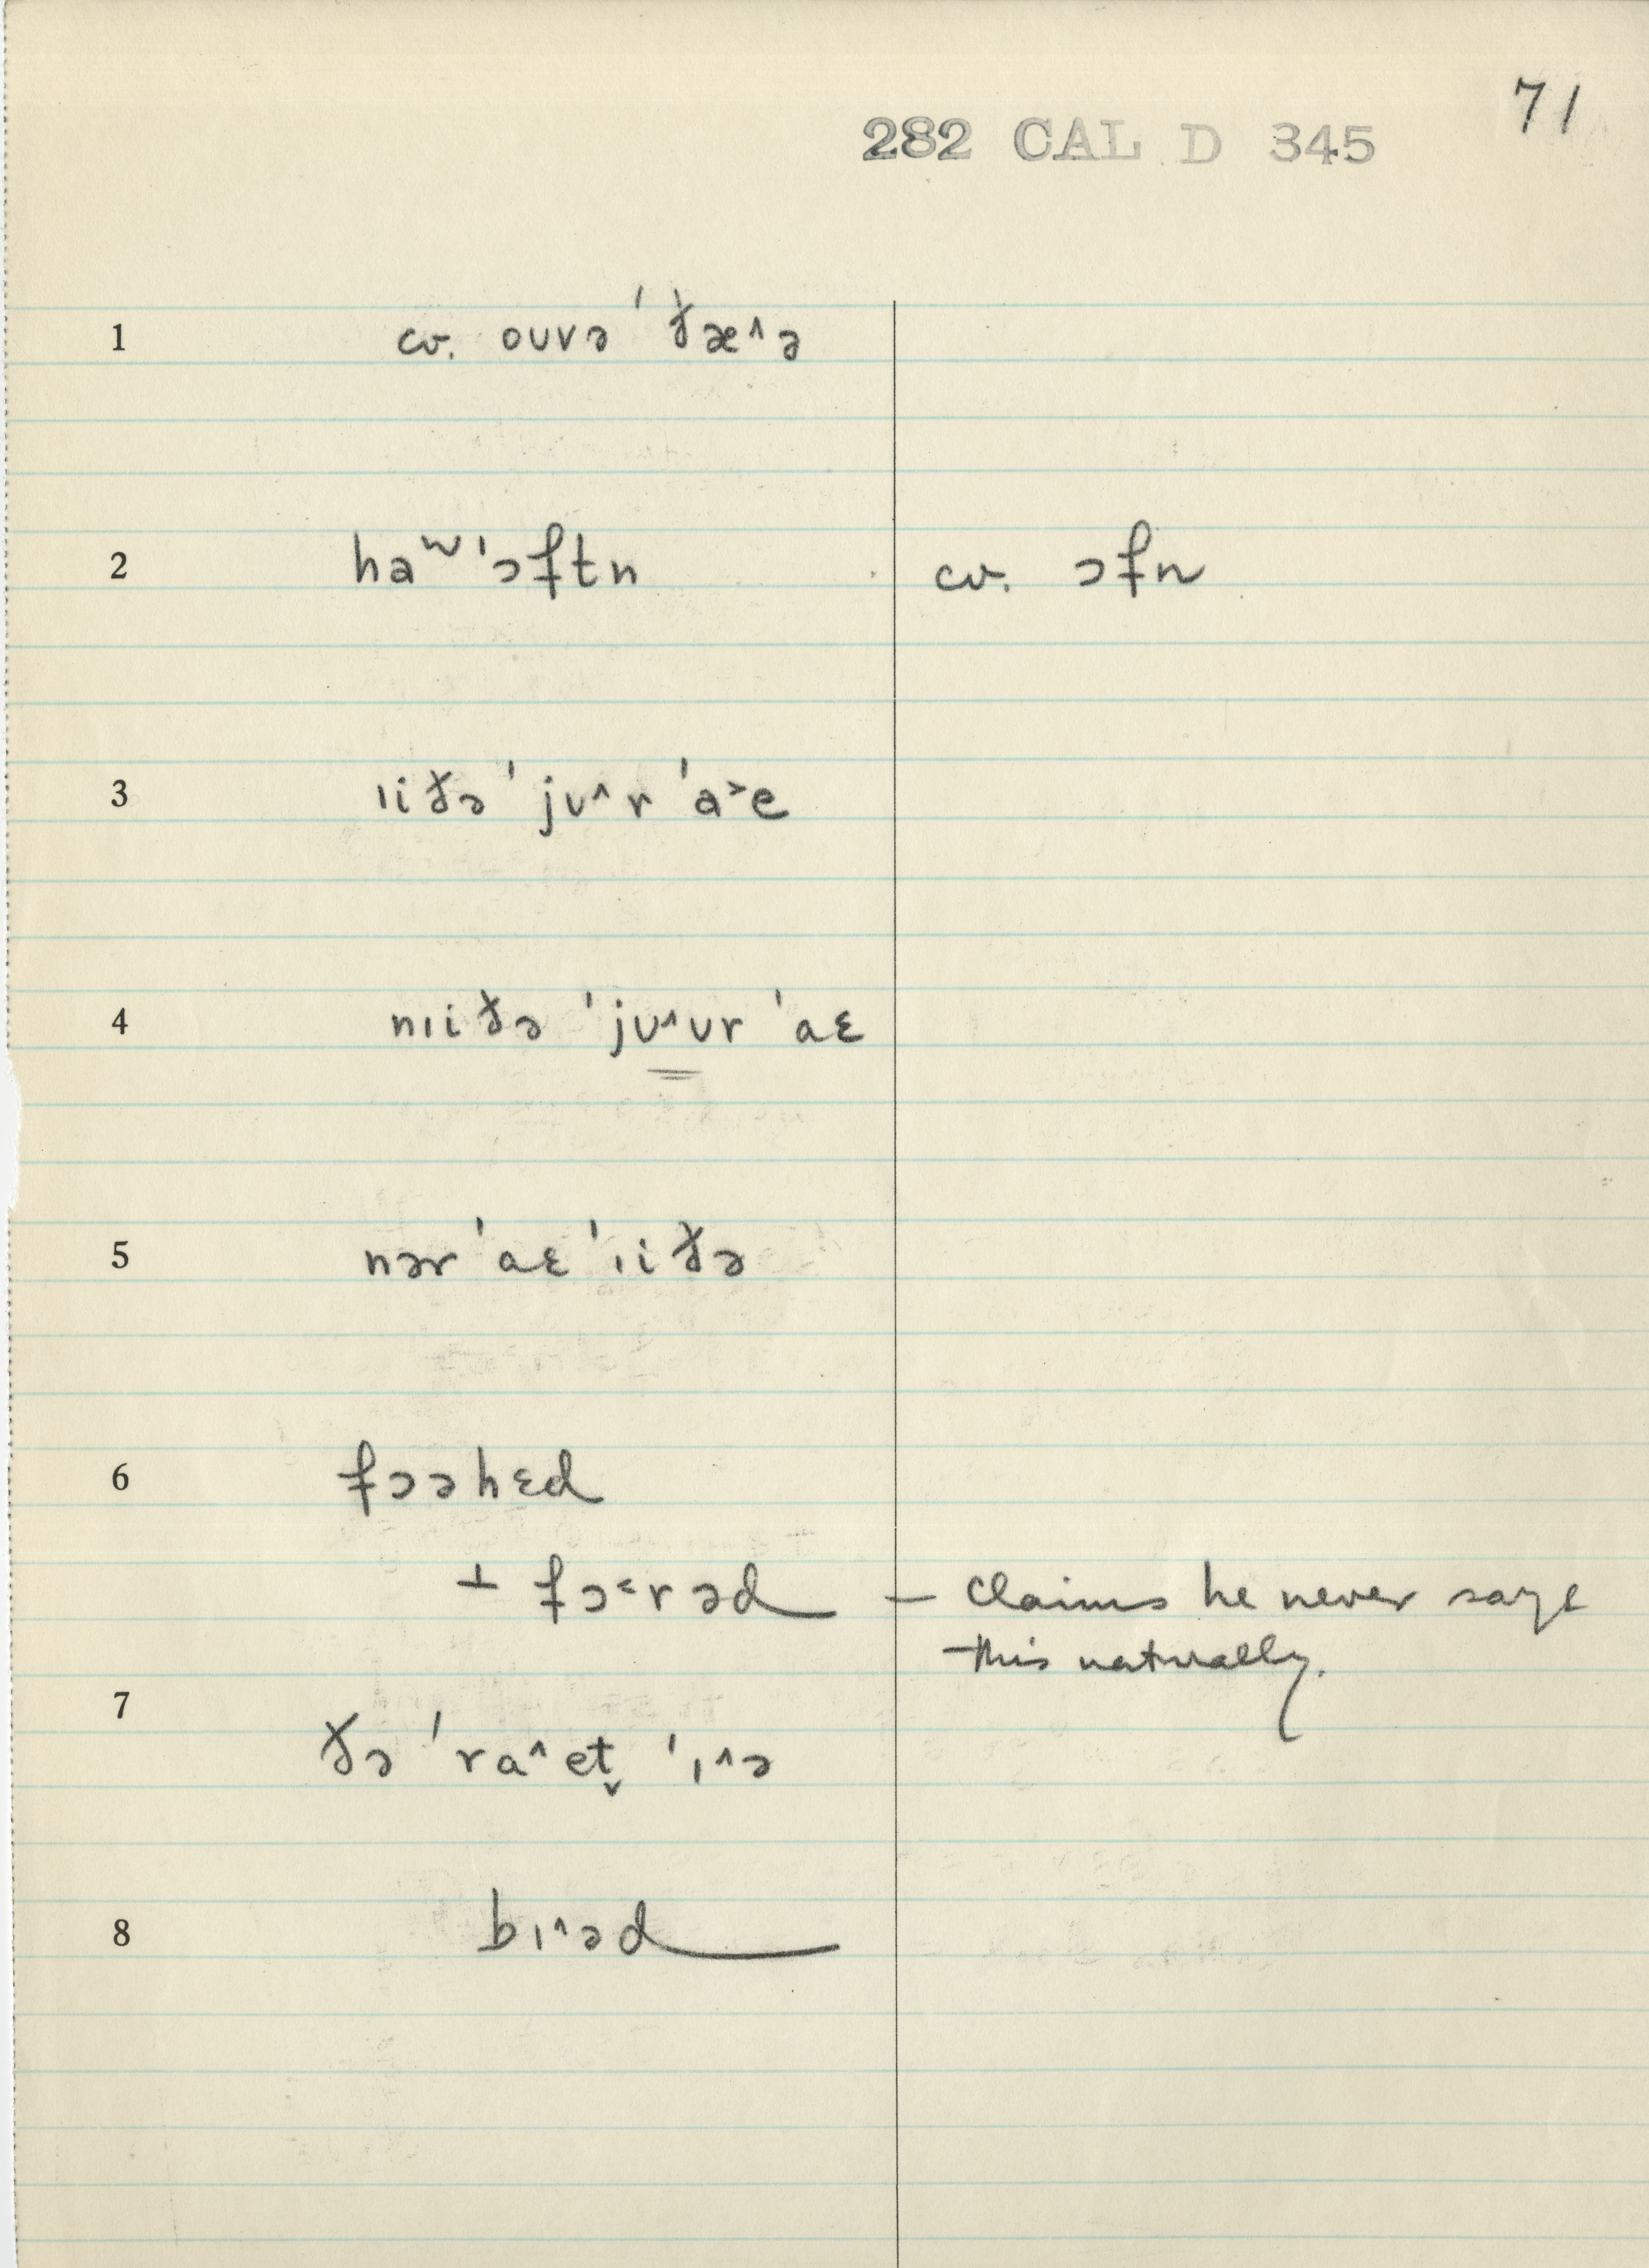 71
282 CAL D 345
1 cv. oʊvə ˈðæ^ə
2 haʷ ˈɔftn cv. ɔfn
3 ɪiðə ˈjʊ^r ˈa˃e
4 nɪiðə ˈjʊ^ʊr ˈaɛ
5 nər ˈaɛ ˈɪiðə
6 fɔəhɛd
⊥ fɔ˂rəd — claims he never says
this naturally.
7
ðə ˈra^et̬ ˈɪ^ə
8 bɪ^əd